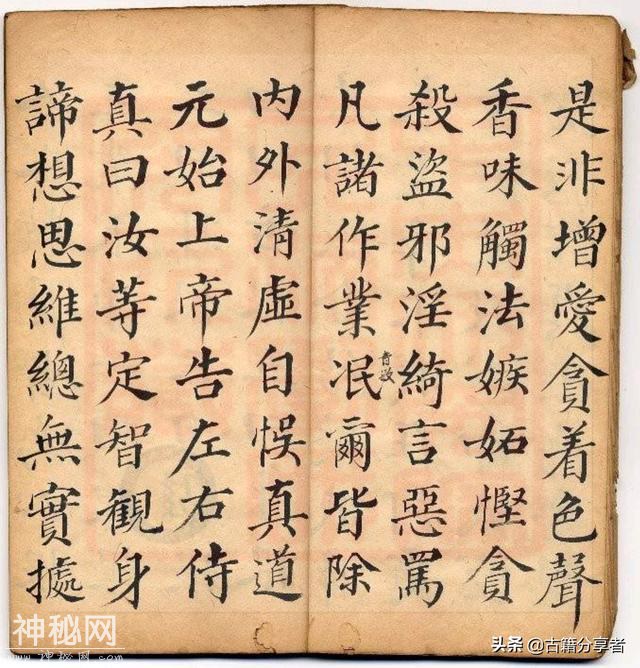 是非增愛貪着色聲
香味觸法嫉妬慳貪
殺盜邪淫綺言惡罵
凡諸作業泯爾皆除
音敏
内外清虛自悞真道
元始上帝告左右侍
真曰汝等定智觀身
諦想思維總無實據
神秘网
www.神秘网.com
头条 @古籍分享者